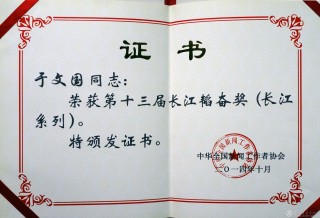 证书
于文国同志：
荣获第十三届长江韬奋奖（长江
系列）。
特颁发证书。
中华全国新闻工作者协会
二〇一四年十月